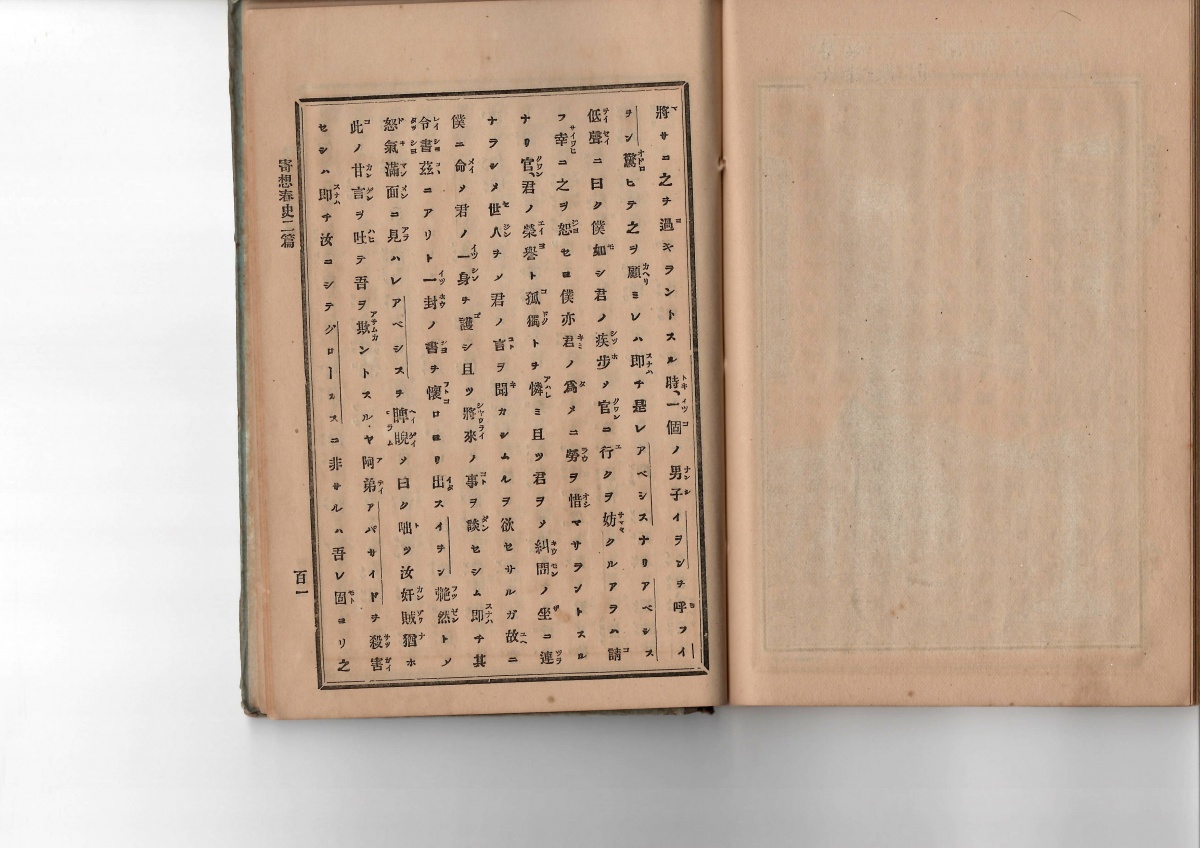 將サニ之ヲ過キラントスル時、一個ノ男子イヲンヲ呼フイ
ヲン驚ヒテ之ヲ顧ミレハ即チ是レアベシスナリアベシス
低聲ニ曰ク僕如シ君ノ疾步メ官ニ行クヲ妨クルアラハ請
フ幸ニ之ヲ恕セヨ僕亦君ノ爲メニ勞ヲ惜マサラントスル
ナリ官、君ノ榮譽ト孤獨トヲ憐ミ且ツ君ヲメ糾問ノ坐ニ連
ナラシメ世人ヲメ君ノ言ヲ聞カシムルヲ欲セサルガ故ニ
僕ニ命メ君ノ一身ヲ護シ且ツ將來ノ事ヲ談セシム即チ其
令書茲ニアリト一封ノ書ヲ懷ロヨリ出スイヲン艴然トメ
怒氣滿面ニ見ハレアベシスヲ睥睨メ曰ク咄ツ汝奸賊猶ホ
此ノ甘言ヲ吐テ吾ヲ欺ントスルヤ阿弟アパサイドヲ殺害
セシハ即チ汝ニシテグローススニ非サルハ吾レ固ヨリ之
寄想春史二篇
百一